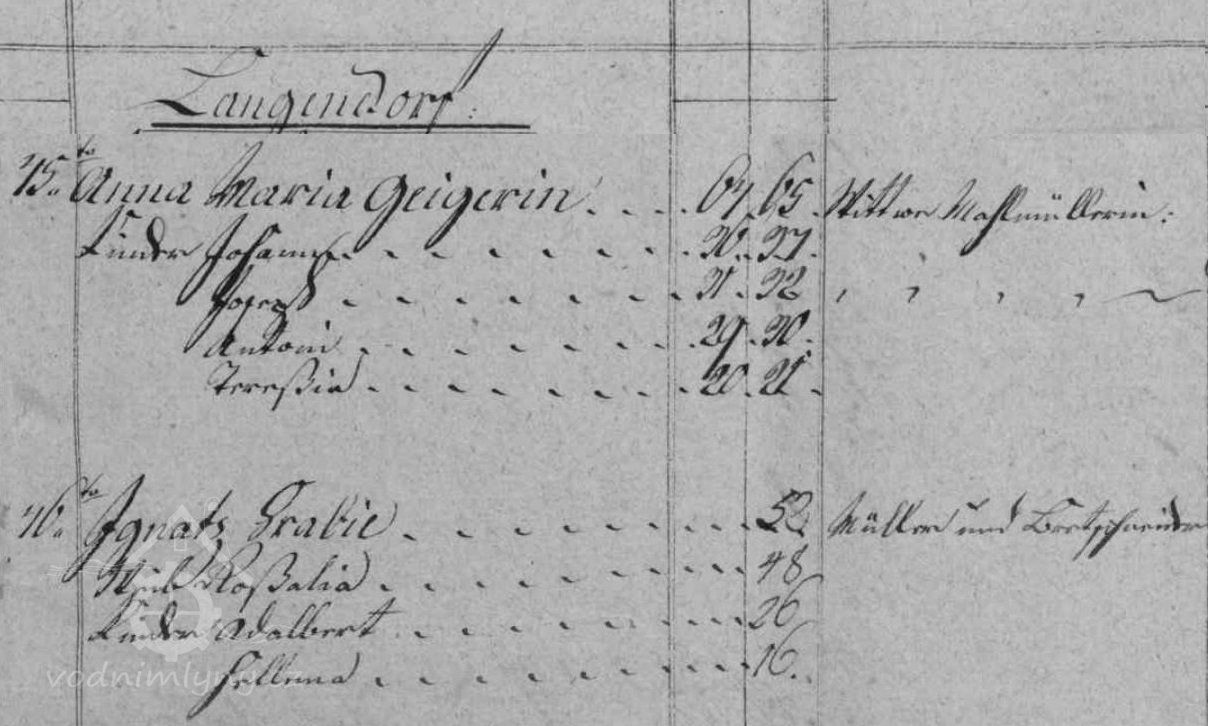 Langendorf:
45.to Anna Maria Geigerin . . . . 64. 65. Wittwe Mahlmüllerin:
Kinder Johann . . . . . . . . 36. 37.
Joseph . . . . . . . . 31. 32
Antoni . . . . . . . . 29. 30.
Tereßia . . . . . . . . 20. 21.
46.to Ignatz Hrabie . . . . . . . . 52. Müller und Bretschneider
Weib Roßalia . . . . . . . . 48
Kinder Adalbert . . . . . . . . 26
Hellena . . . . . . . . 16.
vodnimlyny